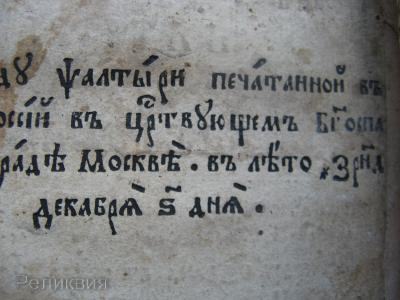 ду ѱалты́ри печа́танной въ
осі́й въ црⷭ҇твующемъ бг҃оспа
ра́дѣ Москвѣ̀. въ лѣ́то ҂зрн҃д
декабрѧ̀ ѕ҃ днѧ̀.
Реликвия